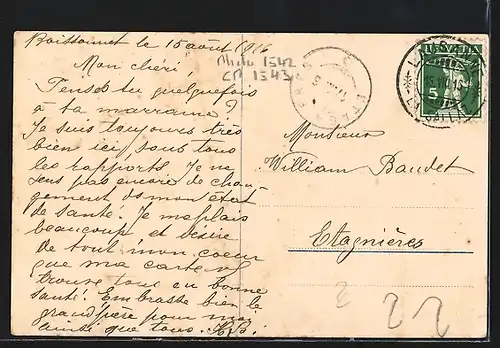 Boissonnet le 15 août 1916
Mon chéri,
Penses tu quelquefois
à ta marraine?
Je suis toujours très
bien ici, sous tous
les rapports. Je ne
sens pas encore de chan-
gement de mon état
de santé. Je me plais
beaucoup et désire
de tout mon coeur
que ma carte
trouve tous en bonne
santé. Embrasse bien le
grand'père pour moi
ainsi que tous.
Monsieur
William Baudet
Etagnières
1542
1543
HELVETIA
5
2 22